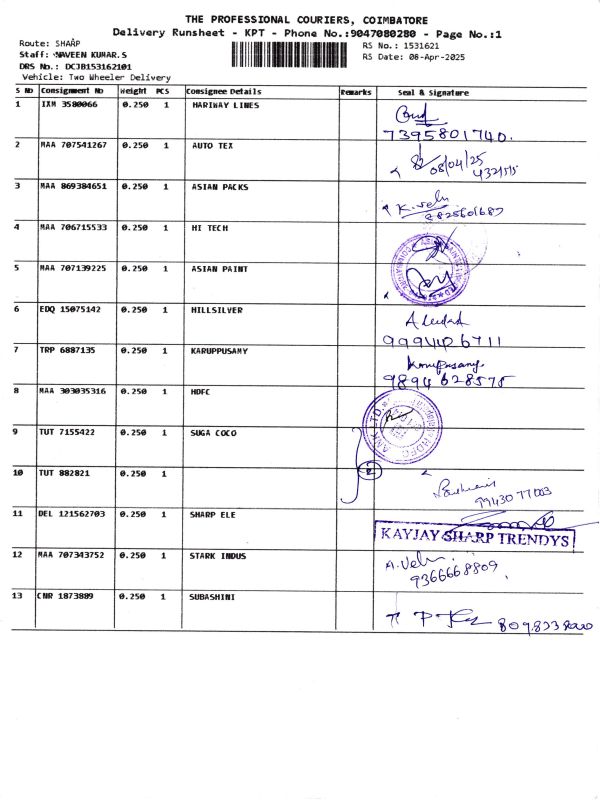 THE PROFESSIONAL COURIERS, COIMBATORE
Delivery Runsheet - KPT - Phone No.:9047080280 - Page No.:1
Route: SHARP
RS No. : 1531621
Staff: NAVEEN KUMAR.S
RS Date: 08-Apr-2025
DRS No.: DCJB153162101
Vehicle: Two Wheeler Delivery
S No Consignment No Weight PCS Consignee Details Remarks Seal & Signature
1 IXM 3580066 0.250 1 HARIWAY LINES
7395801740.
2 MAA 707541267 0.250 1 AUTO TEX
08/04/25
3 MAA 869384651 0.250 1 ASIAN PACKS
K. Velu
4 MAA 706715533 0.250 1 HI TECH
5 MAA 707139225 0.250 1 ASIAN PAINT
6 EDQ 15075142 0.250 1 HILLSILVER
7 TRP 6887135 0.250 1 KARUPPUSAMY
Karuppusamy
9894628575
8 MAA 303035316 0.250 1 HDFC
9 TUT 7155422 0.250 1 SUGA COCO
2
10 TUT 882821 0.250 1
11 DEL 121562703 0.250 1 SHARP ELE
KAYJAY SHARP TRENDYS
12 MAA 707343752 0.250 1 STARK INDUS
A. Velu
9366668809
13 CNR 1873889 0.250 1 SUBASHINI